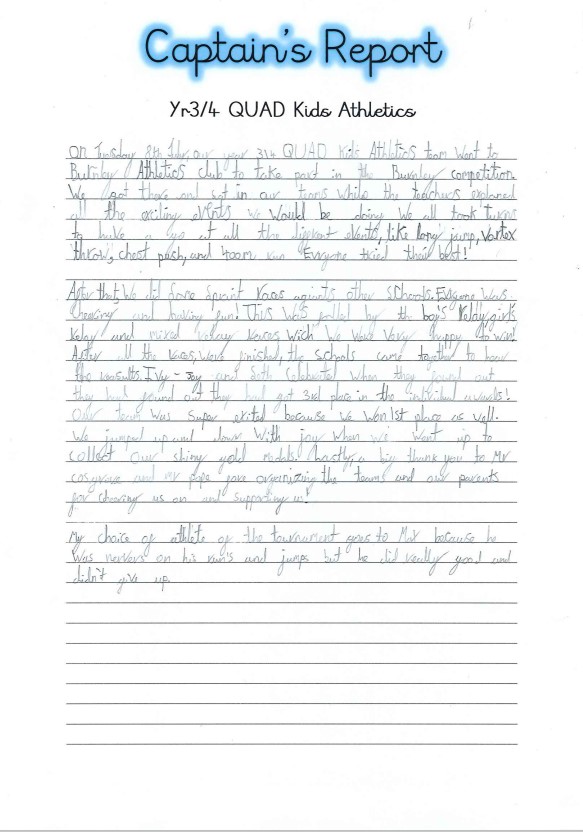 Captain's Report
Yr3/4 QUAD Kids Athletics
On Tuesday 8th July, our year 3/4 QUAD Kids Athletics team went to
Burnley Athletics club to take part in the Burnley competition.
We got there and sat in our teams while the teachers explained
all the exciting events we would be doing. We all took turns
to have a go at all the different events, like long jump, vortex
throw, chest push, and 400m run. Everyone tried their best!
After that, We did some sprint races against other schools. Everyone was
cheering and having fun! This was by the boy's relay, girls
relay and mixed relay races wich we were very happy to win!
After all the races, were finished, the schools came together to hear
the results. Ivy-Joy and Seth celebrated when they found out
they had found out they had got 3rd place in the individual awards!
Our team was super exited because we won 1st place as well.
We jumped up and down with joy when we went up to
collect our shiny gold medals. Lastly, a big thank you to Mr
cosgrove and mr pope for organizing the teams and our parents
for cheering us on and supporting us!
My choice of athlete of the tournament goes to Max because he
was nervous on his run's and jumps but he did really good and
didn't give up.